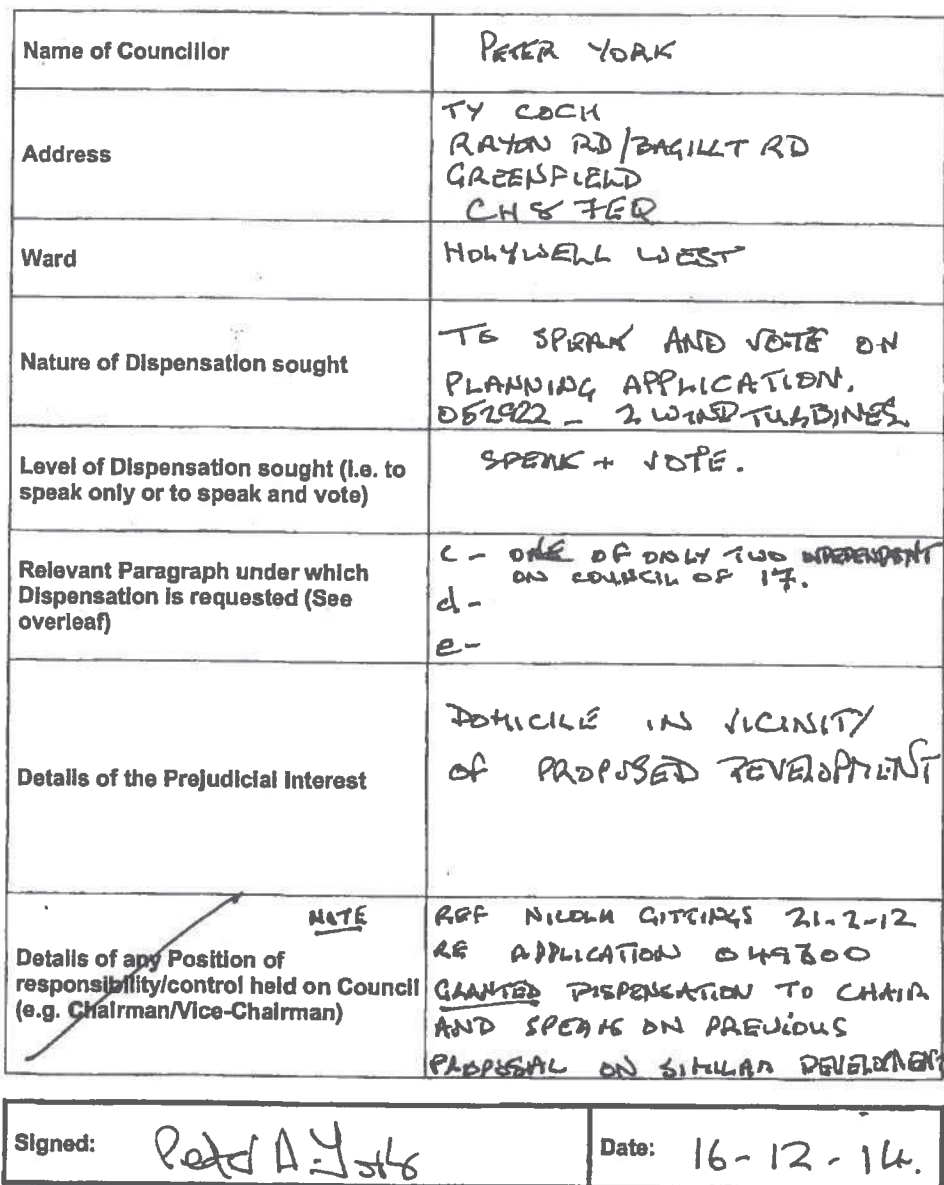 Name of Councillor
PETER YORK
Address
TY COCH
RAYON RD/BAGILLT RD
GREENFIELD
CH8 7EQ
Ward
HOLYWELL WEST
Nature of Dispensation sought
TO SPEAK AND VOTE ON
PLANNING APPLICATION.
052922 - 2 WIND TURBINES.
Level of Dispensation sought (i.e. to
speak only or to speak and vote)
SPEAK + VOTE.
Relevant Paragraph under which
Dispensation is requested (See
overleaf)
c - ONE OF ONLY TWO INDEPENDENT
ON COUNCIL OF 17.
d -
e -
Details of the Prejudicial Interest
DOMICILE IN VICINITY
OF PROPOSED DEVELOPMENT
NOTE
Details of any Position of
responsibility/control held on Council
(e.g. Chairman/Vice-Chairman)
REF NICOLA GITTINGS 21-2-12
RE APPLICATION 049300
GRANTED DISPENSATION TO CHAIR
AND SPEAK ON PREVIOUS
PROPOSAL ON SIMILAR DEVELOPMENT
Signed:
Peter A. York
Date:
16-12-14.